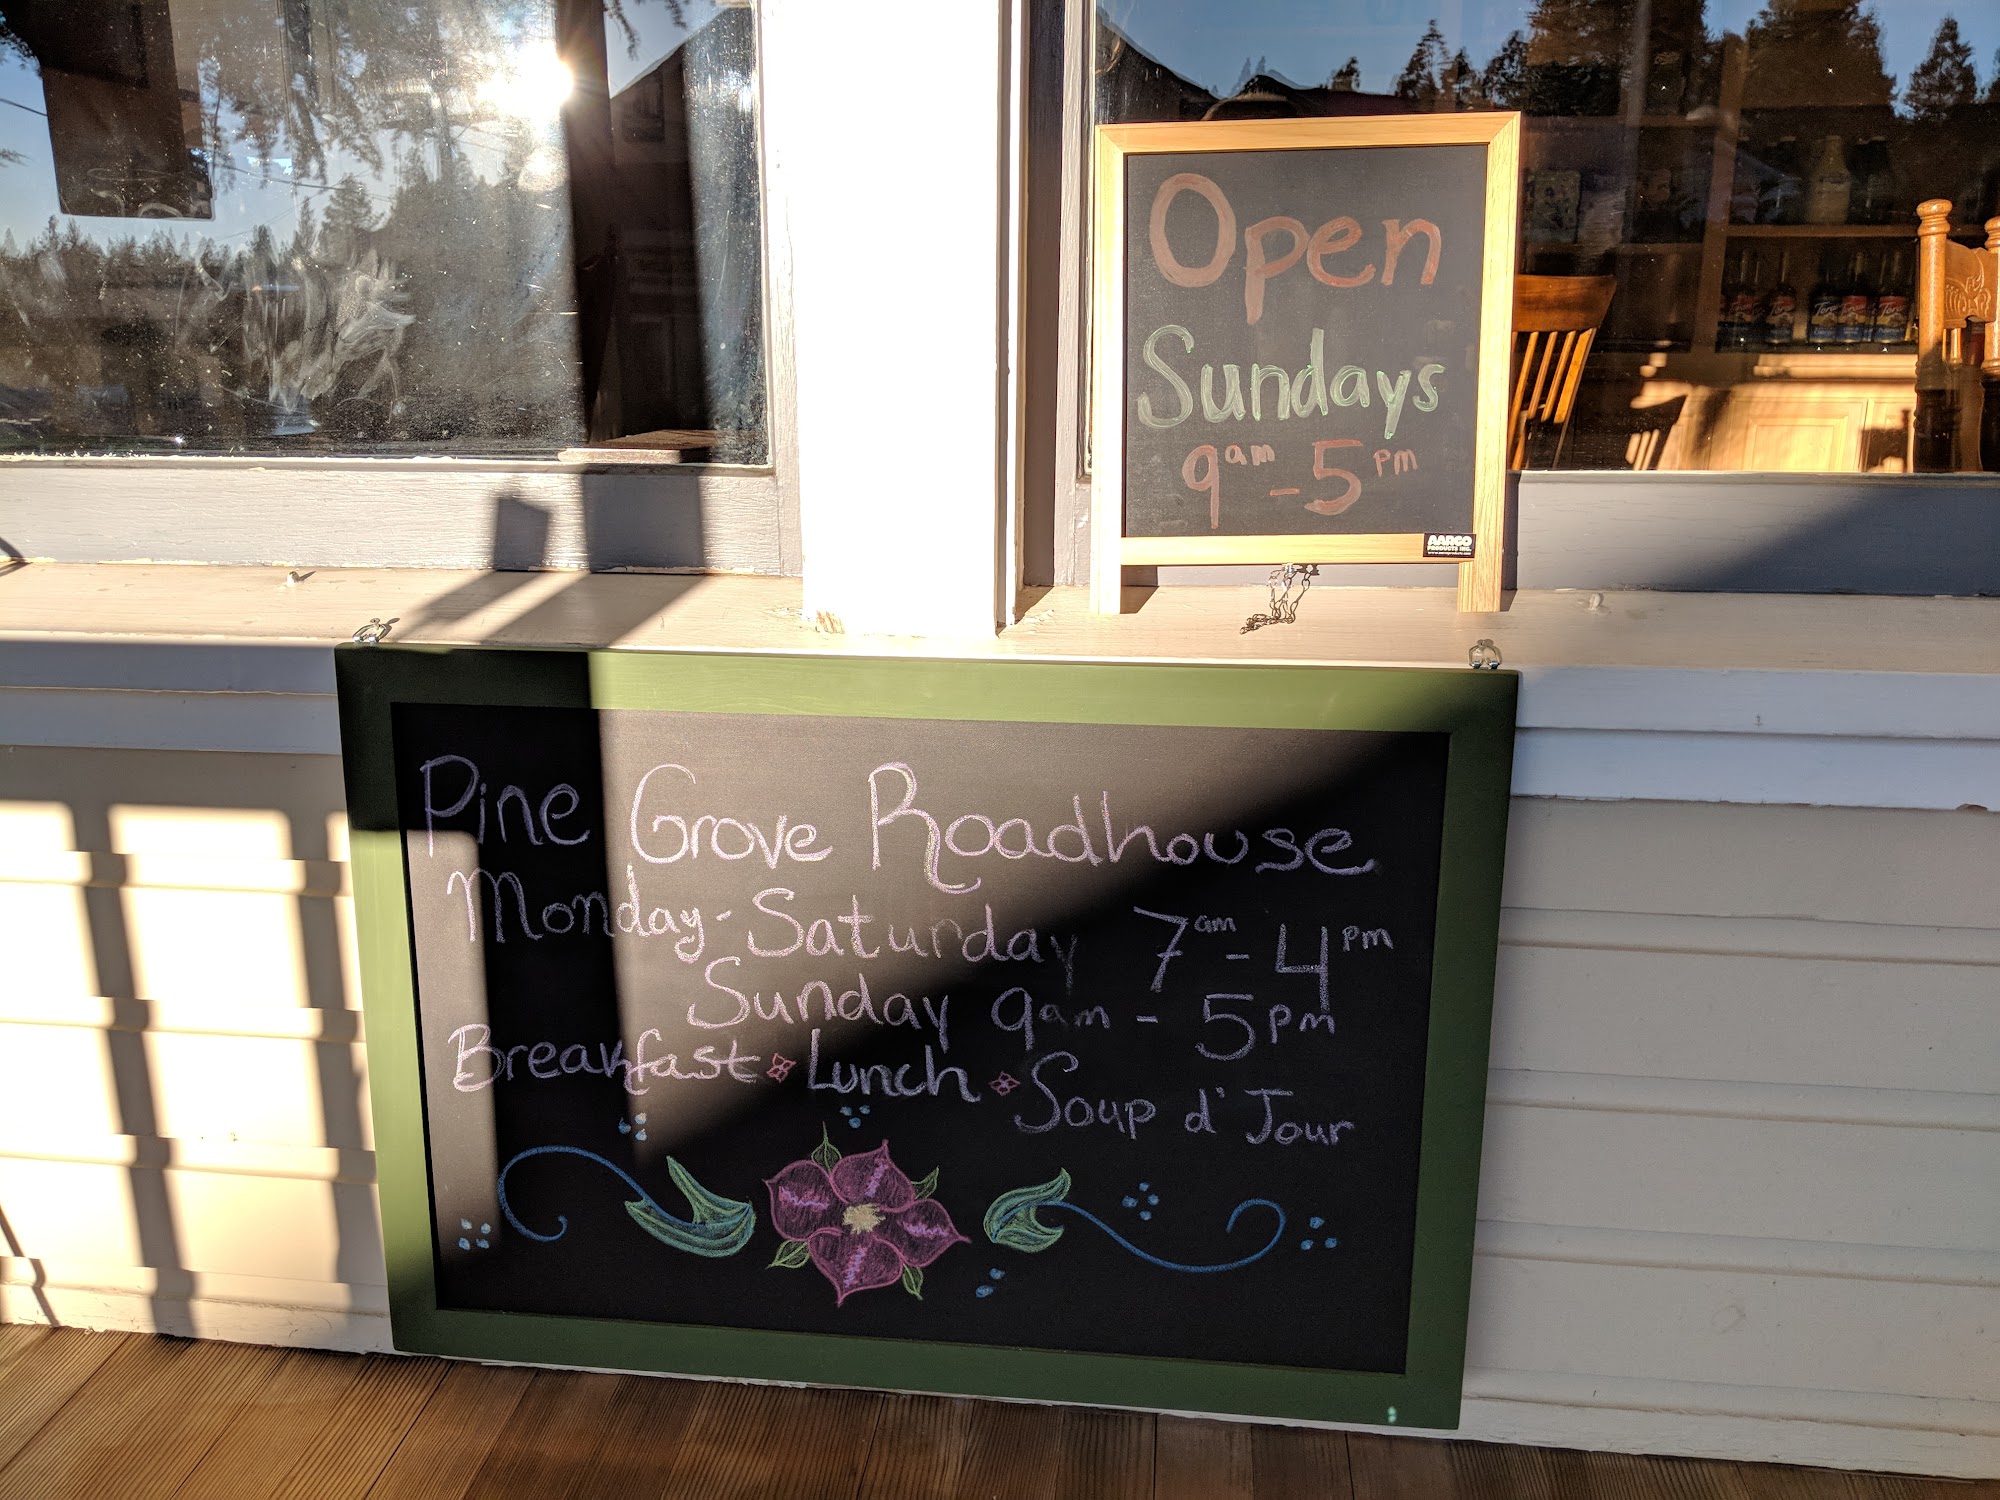 Open
Sundays
9am - 5pm
AARCO
PRODUCTS INC.
Pine Grove Roadhouse
Monday - Saturday 7am - 4pm
Sunday 9am - 5pm
Breakfast Lunch Soup d' Jour